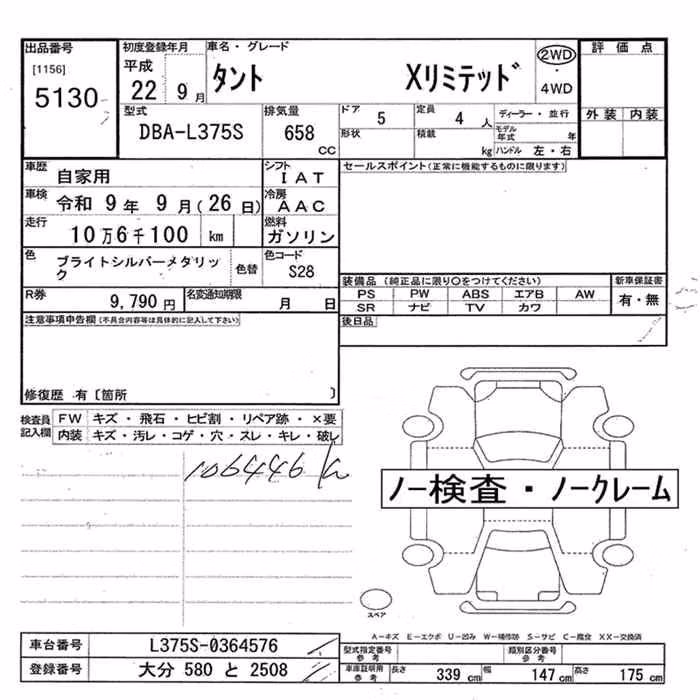 出品番号
[1156]
5130
初度登録年月
平成
22 9月
車名・グレード
タント Xリミテッド
2WD
・
4WD
評価点
外装 内装
型式
DBA-L375S
排気量
658
CC
ドア
5
定員
4人
ディーラー・並行
形状
積載
kg
モデル年式
年
ハンドル 左・右
車歴
自家用
シフト
IAT
車検
令和 9年 9月(26日)
冷房
AAC
走行
10万6千100 km
燃料
ガソリン
色
ブライトシルバーメタリック
色替
色コード
S28
R券
9,790円
名変通知期限
月 日
セールスポイント(正常に機能するものに限ります)
装備品(純正品に限り○をつけてください)
PS PW ABS エアB AW
SR ナビ TV カワ
新車保証書
有・無
後日品
注意事項申告欄(不具合内容等は具体的に記入して下さい)
修復歴 有〔箇所 〕
検査員記入欄
FW キズ・飛石・ヒビ割・リペア跡・×要
内装 キズ・汚レ・コゲ・穴・スレ・キレ・破レ
106446 km
ノー検査・ノークレーム
スペア
A-キズ E-エクボ U-凹み W-補修跡 S-サビ C-腐食 XX-交換済
車台番号 L375S-0364576
登録番号 大分 580 と 2508
型式指定番号
参考
類別区分番号
参考
車庫証明用
参考
長さ 339 cm 幅 147 cm 高さ 175 cm